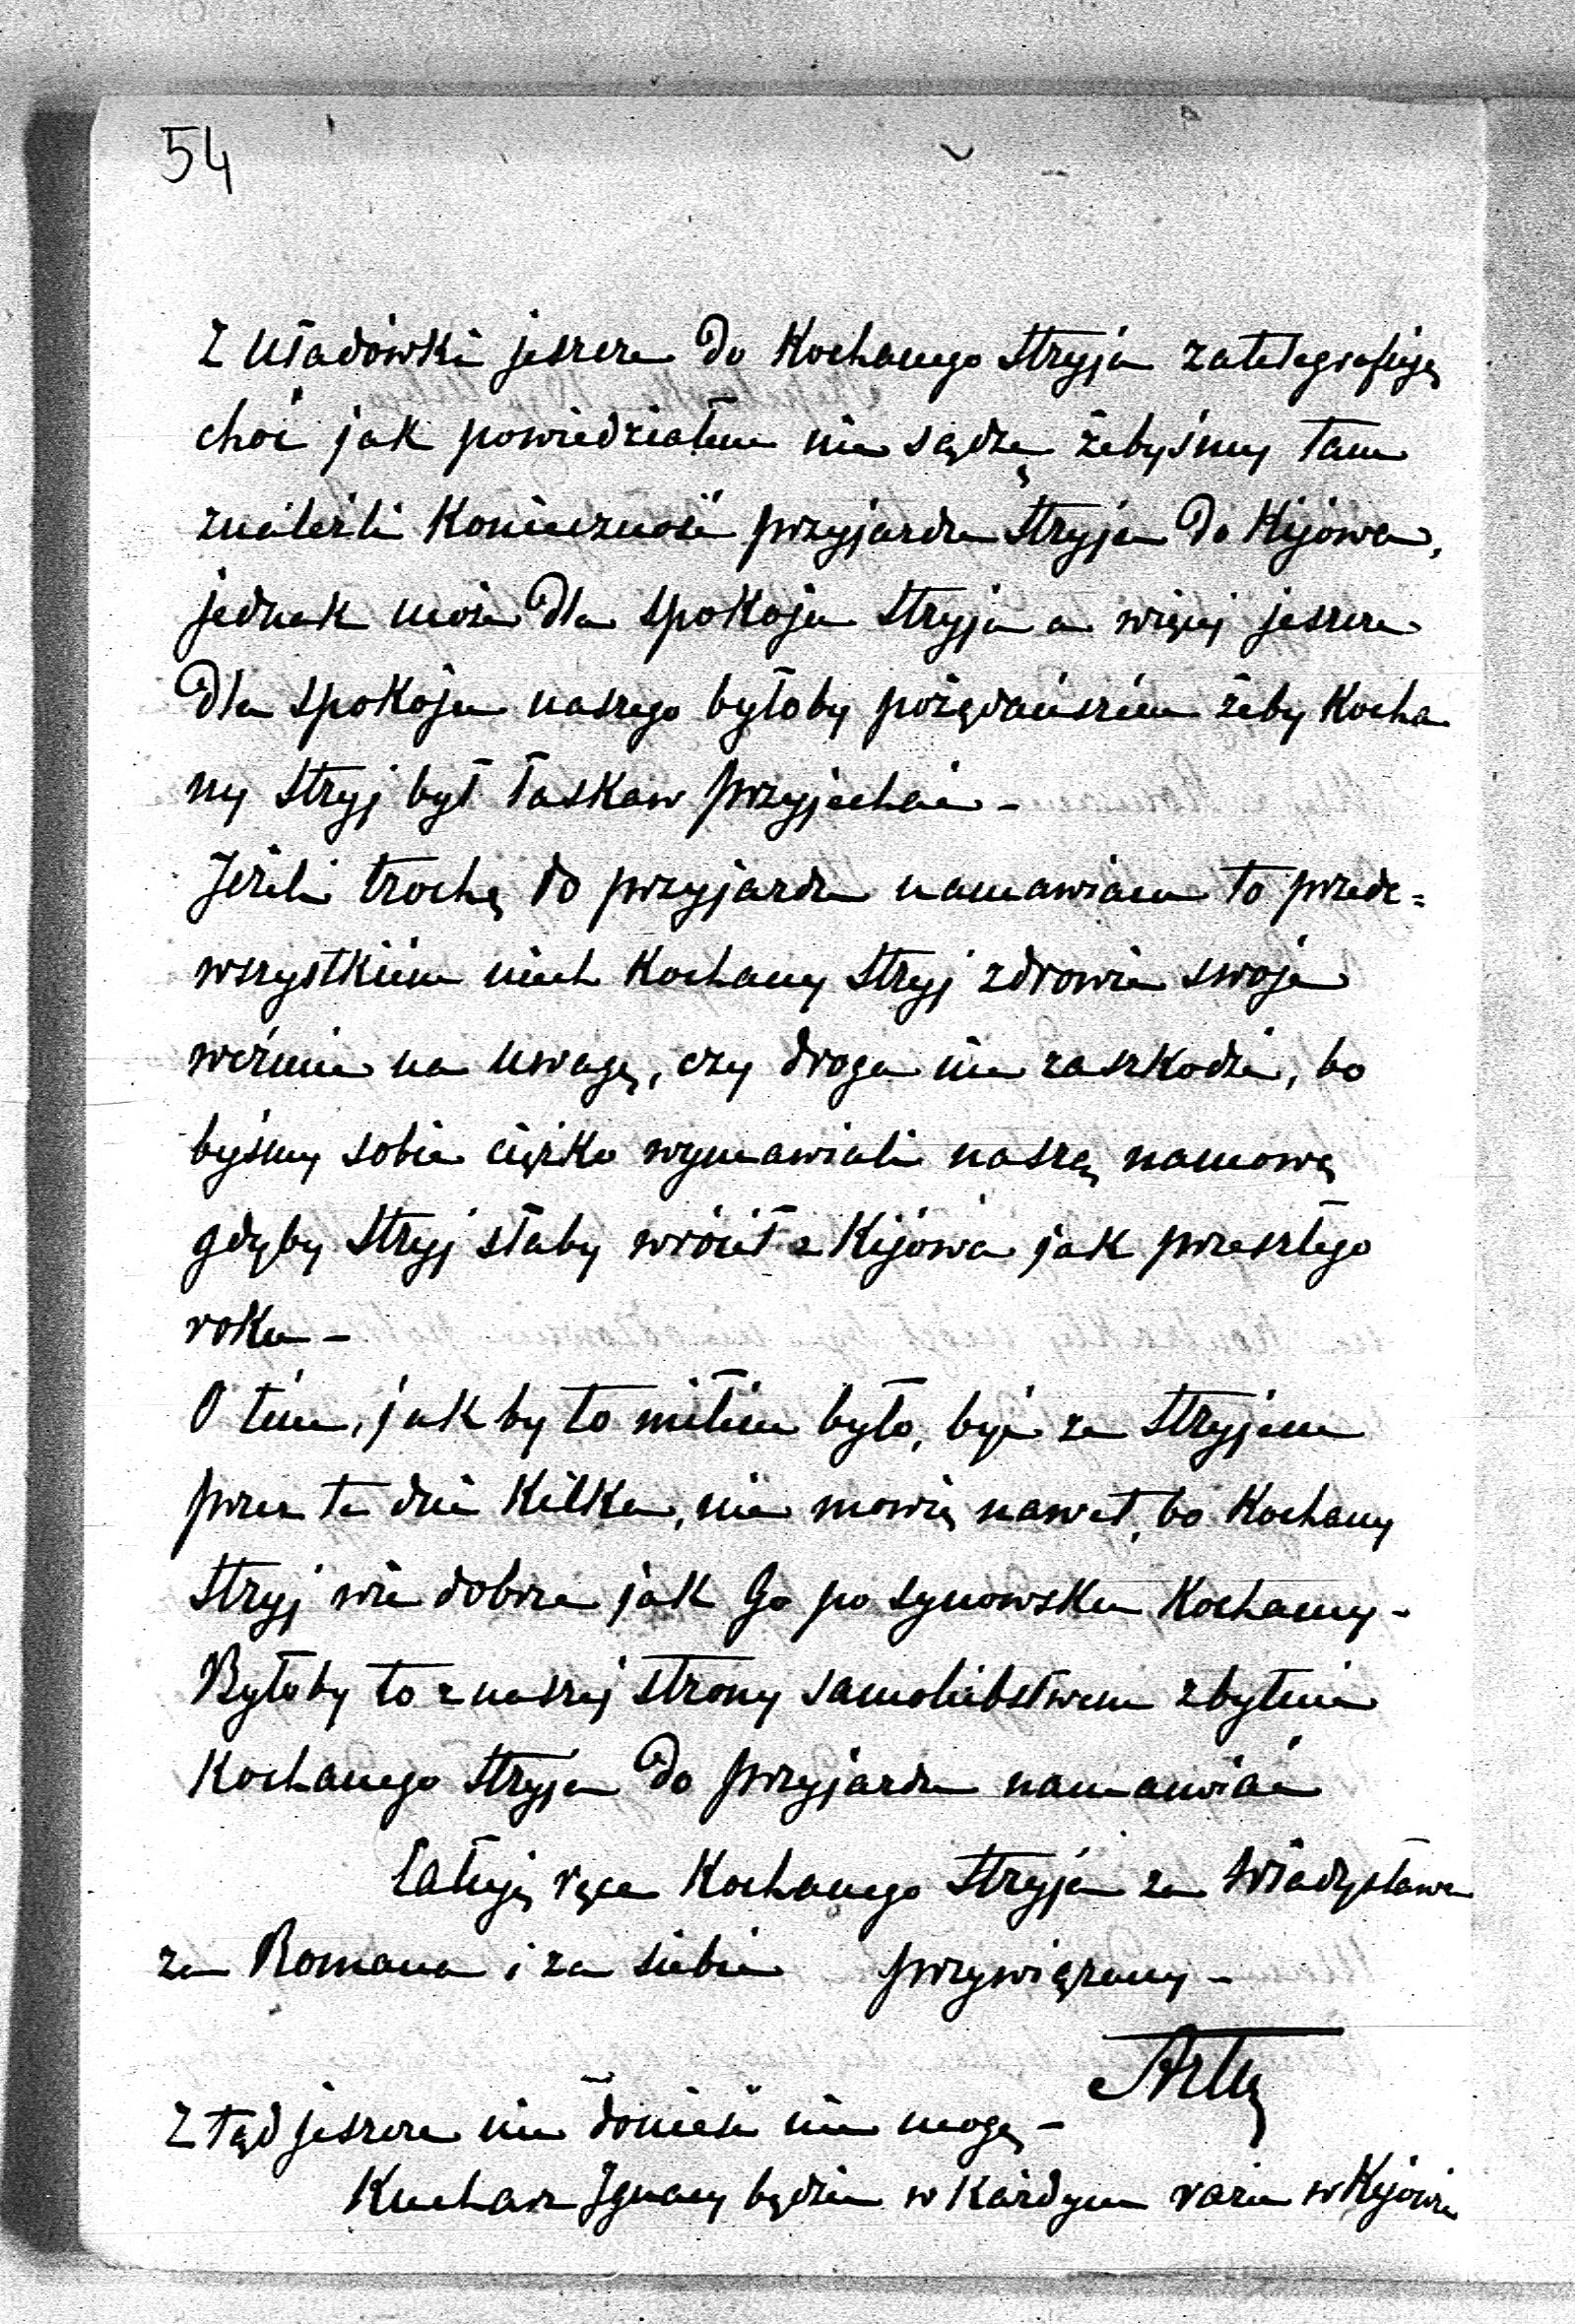 54
Z Uładówki jeszcze do Kochanego Stryja zatelegrafuję
choć jak powiedziałem nie sądzę żebyśmy tam
znaleźli konieczność przyjazdu Stryja do Kijowa,
jednak może dla spokoju Stryja a więcej jeszcze
dla spokoju naszego byłoby pożądańszém żeby Kocha
ny Stryj był łaskaw przyjechać –
Jeżeli trochę do przyjazdu namawiam to przede=
wszystkiém niech Kochany Stryj zdrowie swoje
weźmie na uwagę, czy droga nie zaszkodzi, bo
byśmy sobie ciężko wymawiali naszą namowę
gdyby Stryj słaby wrócił z Kijowa jak przeszłego
roku –
O tém, jak by to miłém było, być ze Stryjem
przez te dni kilka, nie mówię nawet, bo Kochany
Stryj wie dobrze jak Go po synowsku kochamy –
Byłoby to z naszej strony samolubstwem zbytnie
Kochanego Stryja do przyjazdu namawiać
Całuję ręce Kochanego Stryja za Władysława
za Romana i za siebie przywiązany –
Z tąd jeszcze nic donieść nie mogę –
Kucharz Ignacy będzie w każdym razie w Kijowie